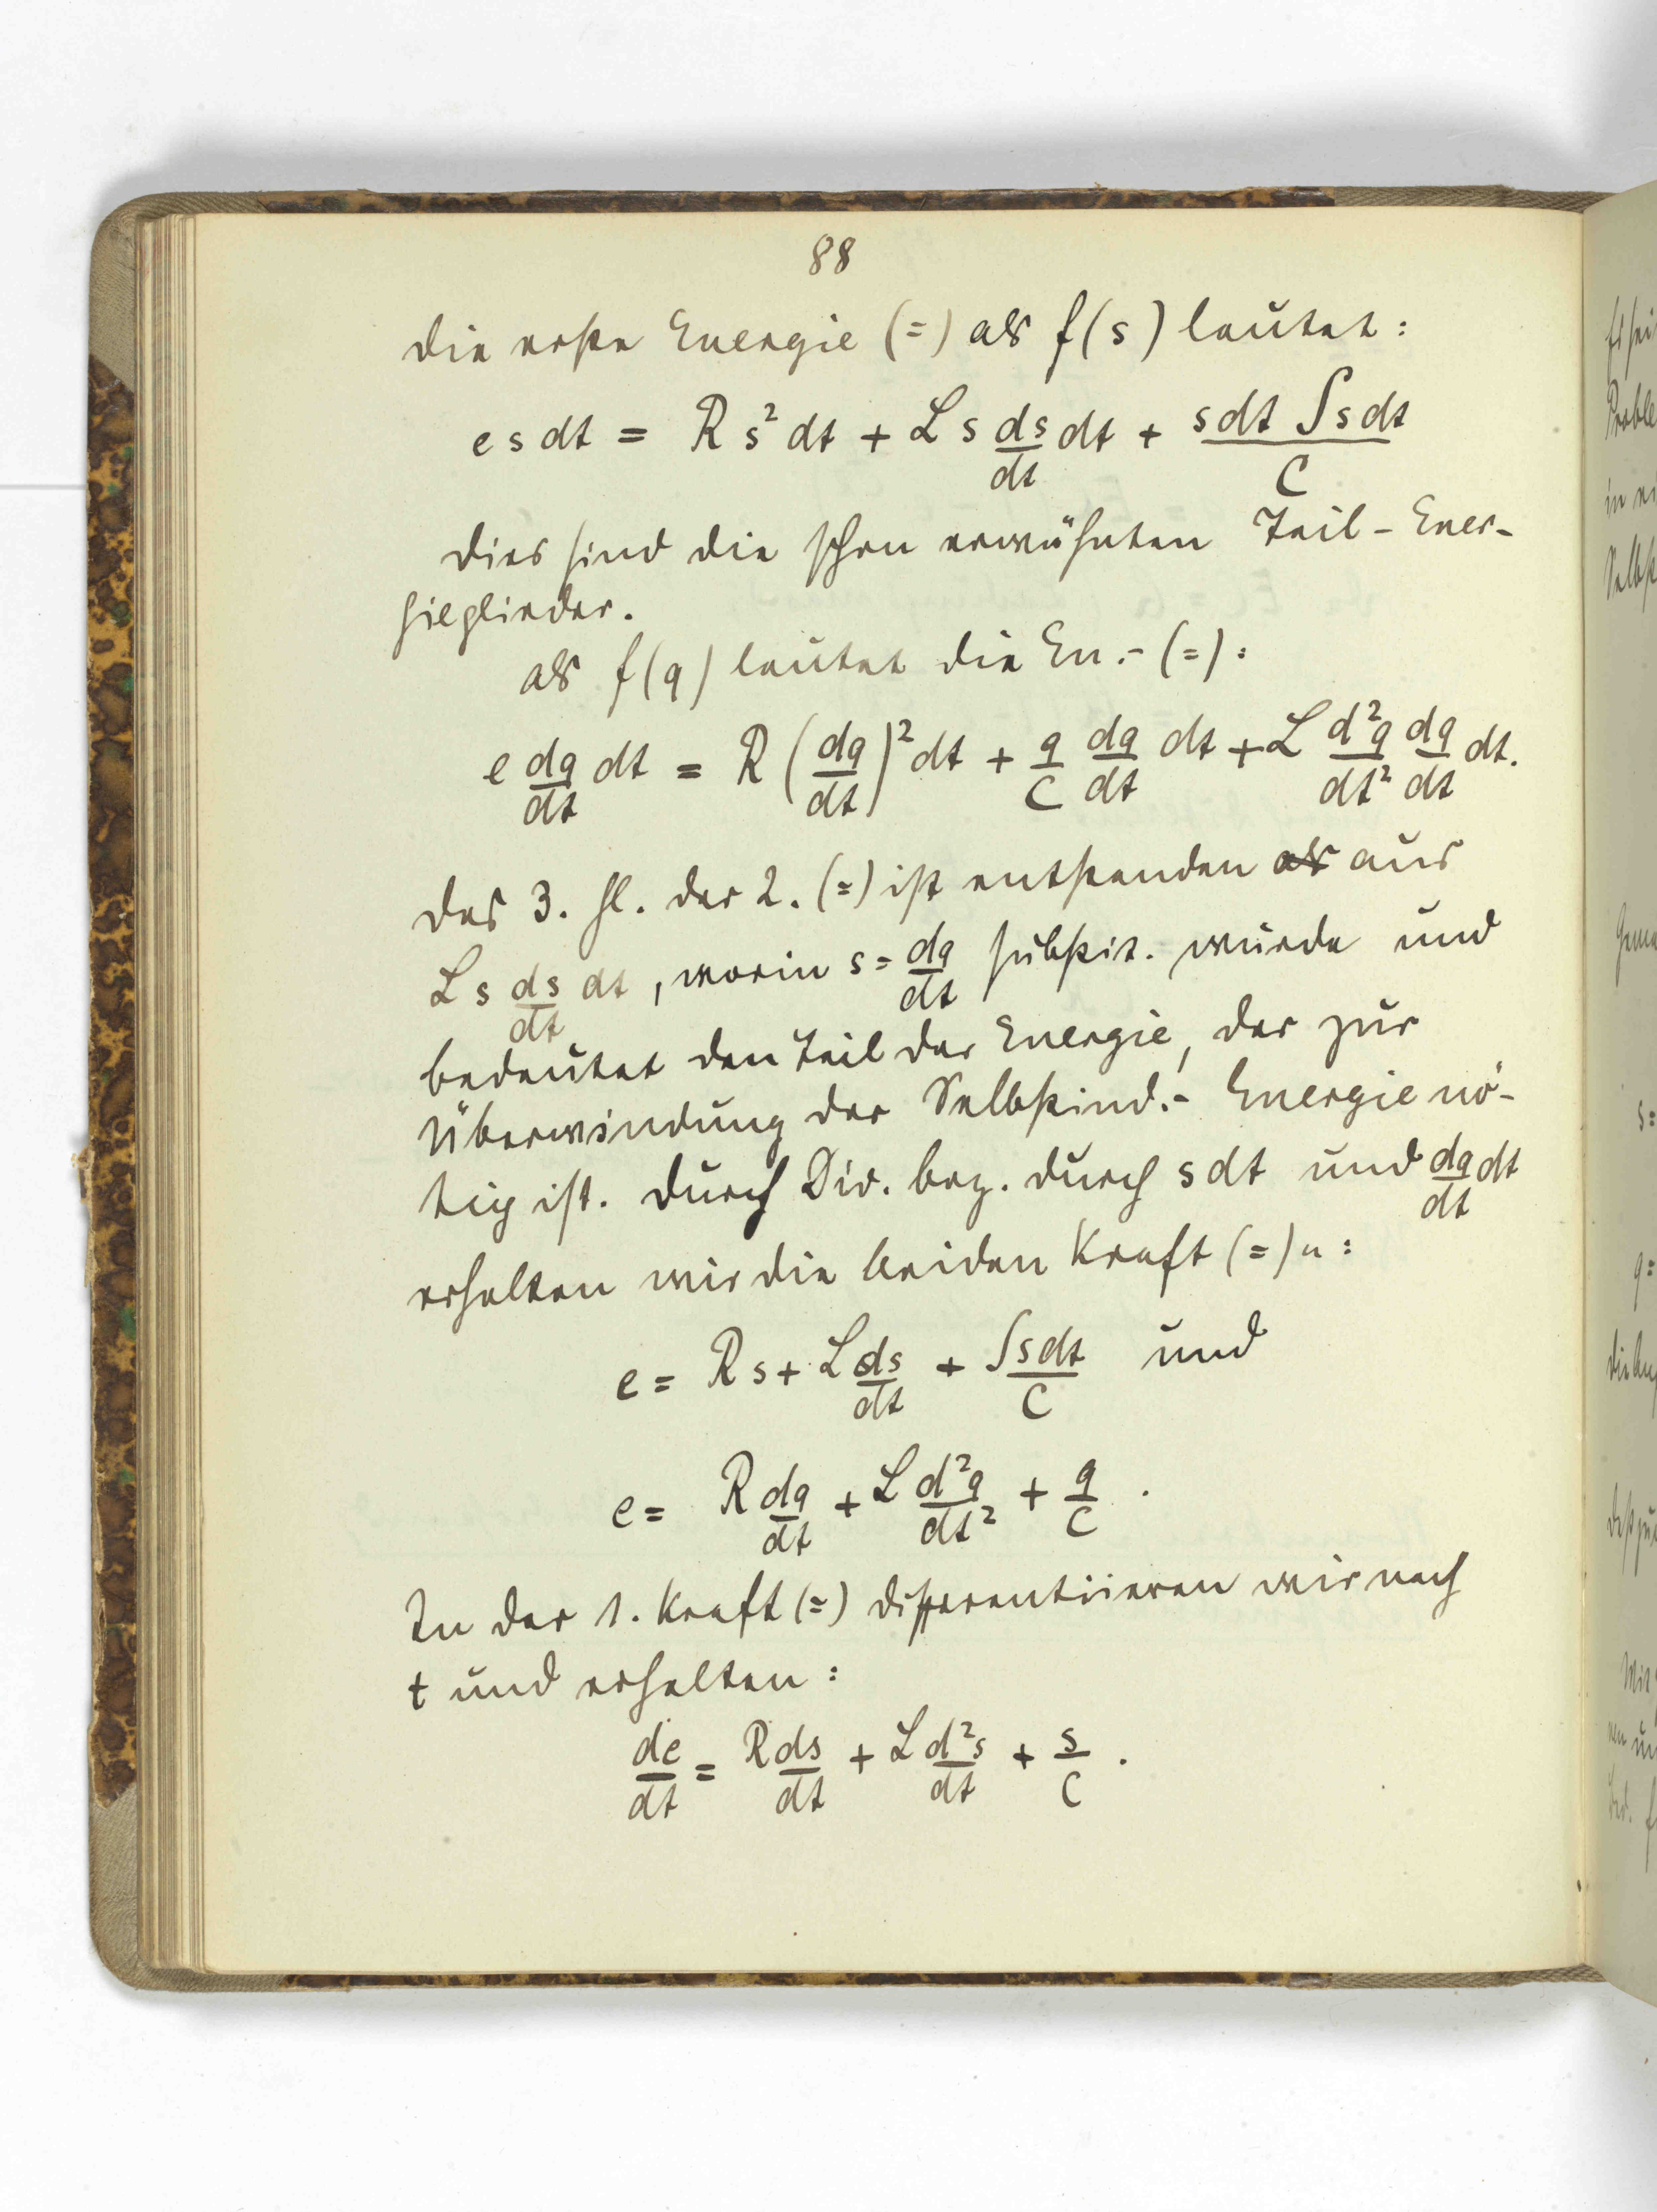 88
Die erste Energie (=) als f(s) lautet:
e s dt = R s² dt + L s ds/dt dt + s dt ∫s dt / C
Dies sind die schon erwähnten Teil-Ener-
gieglieder.
Als f(q) lautet die En.-(=):
e dq/dt dt = R (dq/dt)² dt + q/C dq/dt dt + L d²q/dt² dq/dt dt.
Das 3. Gl. der 2. (=) ist entstanden als aus
L s ds/dt dt, worin s = dq/dt substit. wurde und
bedeutet den Teil der Energie, der zur
Überwindung der Selbstind.- Energie nö-
tig ist. Durch Div. bez. durch s dt und dq/dt dt
erhalten wir die beiden Kraft (=)n:
e = R s + L ds/dt + ∫s dt / C und
e = R dq/dt + L d²q/dt² + q/C .
In der 1. Kraft (=) differentiieren wir nach
t und erhalten:
de/dt = R ds/dt + L d²s/dt + s/C .